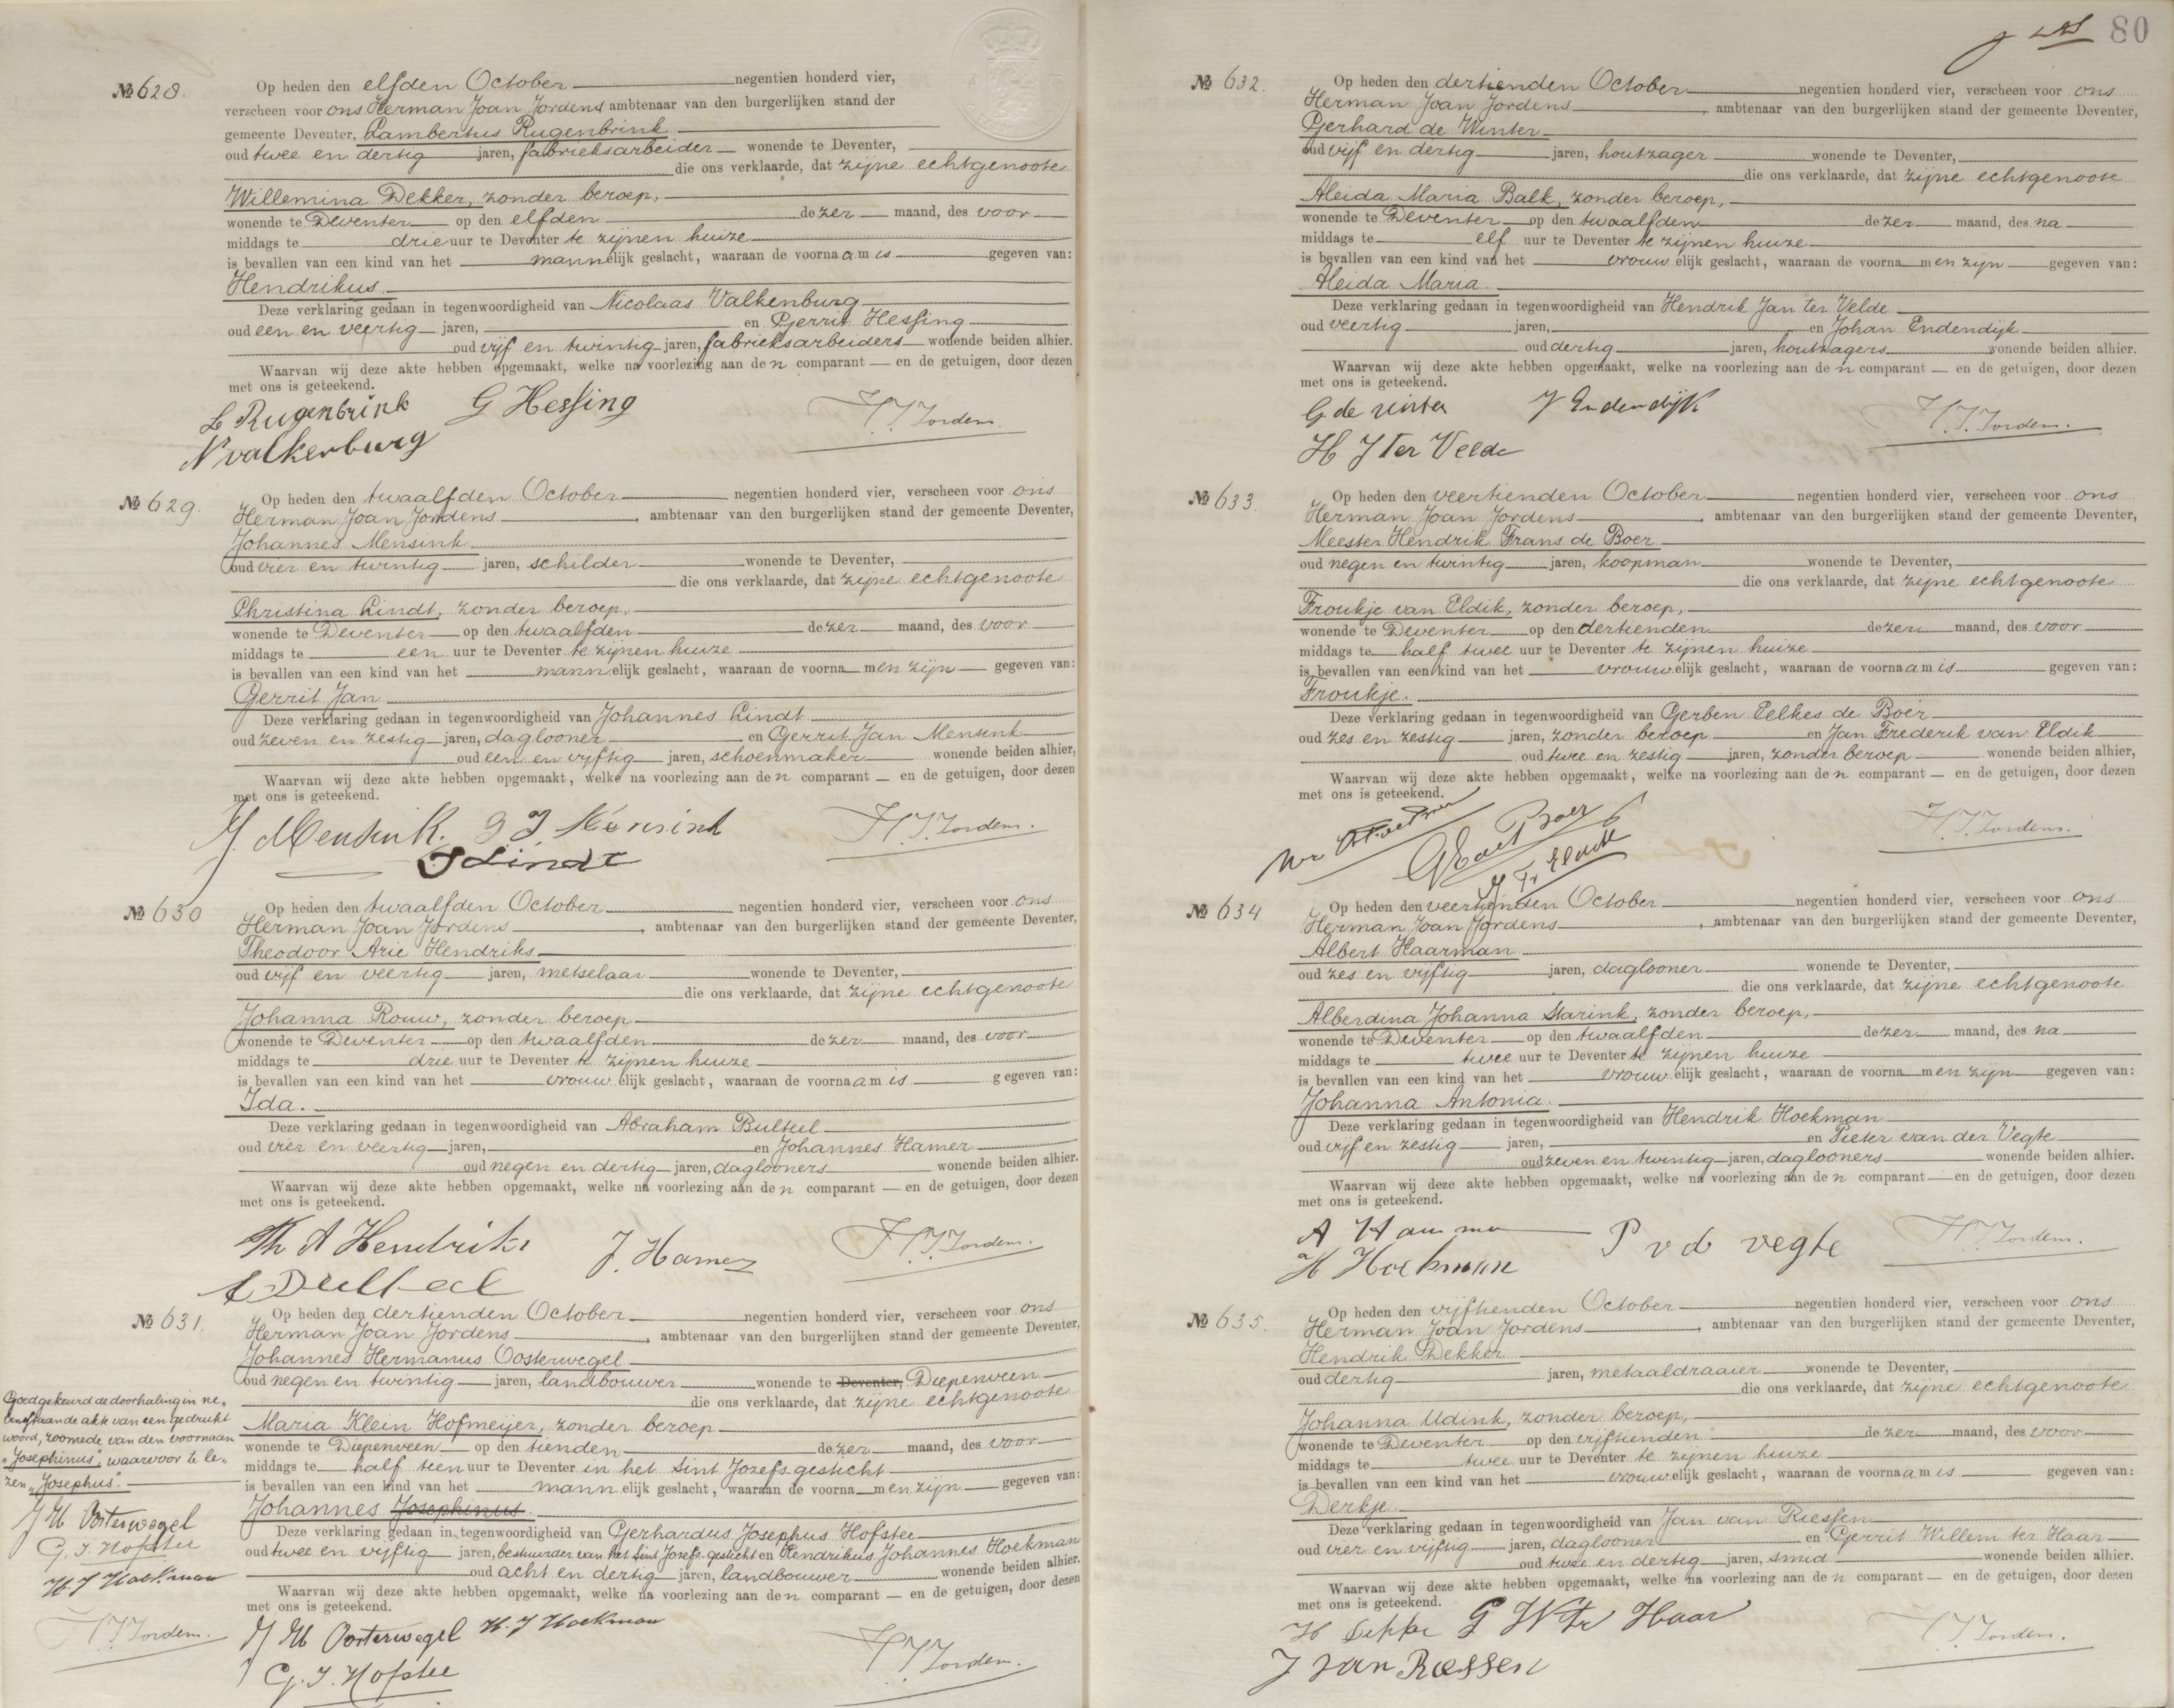 № 628.
Op heden den elfden October negentien honderd vier,
verscheen voor ons Herman Joan Jordens ambtenaar van den burgerlijken stand der
gemeente Deventer, Lambertus Rugenbrink
oud twee en dertig jaren, fabrieksarbeider wonende te Deventer,
die ons verklaarde, dat zijne echtgenoote
Willemina Dekker, zonder beroep,
wonende te Deventer op den elfden dezer maand, des voor
middags te drie uur te Deventer te zijnen huize
is bevallen van een kind van het mannelijk geslacht, waaraan de voornaam is gegeven van:
Hendrikus.
Deze verklaring gedaan in tegenwoordigheid van Nicolaas Valkenburg
oud een en veertig jaren, en Gerrit Hessing
oud vijf en twintig jaren, fabrieksarbeiders wonende beiden alhier.
Waarvan wij deze akte hebben opgemaakt, welke na voorlezing aan den comparant en de getuigen, door dezen
met ons is geteekend.
L Rugenbrink G Hessing H J Jordens.
N valkenburg
№ 629.
Op heden den twaalfden October negentien honderd vier, verscheen voor ons
Herman Joan Jordens, ambtenaar van den burgerlijken stand der gemeente Deventer,
Johannes Mensink
oud vier en twintig jaren, schilder wonende te Deventer,
die ons verklaarde, dat zijne echtgenoote
Christina Lindt, zonder beroep,
wonende te Deventer op den twaalfden dezer maand, des voor
middags te een uur te Deventer te zijnen huize
is bevallen van een kind van het mannelijk geslacht, waaraan de voornamen zijn gegeven van:
Gerrit Jan
Deze verklaring gedaan in tegenwoordigheid van Johannes Lindt
oud zeven en zestig jaren, daglooner en Gerrit Jan Mensink
oud een en vijftig jaren, schoenmaker wonende beiden alhier,
Waarvan wij deze akte hebben opgemaakt, welke na voorlezing aan den comparant en de getuigen, door dezen
met ons is geteekend.
J. Mensink. G J Mensink H J Jordens.
J Lindt
№ 630
Op heden den twaalfden October negentien honderd vier, verscheen voor ons
Herman Joan Jordens, ambtenaar van den burgerlijken stand der gemeente Deventer,
Theodoor Arie Hendriks
oud vijf en veertig jaren, metselaar wonende te Deventer,
die ons verklaarde, dat zijne echtgenoote
Johanna Rouw, zonder beroep
wonende te Deventer op den twaalfden dezer maand, des voor
middags te drie uur te Deventer te zijnen huize
is bevallen van een kind van het vrouwelijk geslacht, waaraan de voornaam is gegeven van:
Ida.
Deze verklaring gedaan in tegenwoordigheid van Abraham Bulteel
oud vier en veertig jaren, en Johannes Hamer
oud negen en dertig jaren, daglooners wonende beiden alhier.
Waarvan wij deze akte hebben opgemaakt, welke na voorlezing aan den comparant en de getuigen, door dezen
met ons is geteekend.
Th A Hendriks J. Hamer H J Jordens.
A Bulteel
№ 631.
Op heden den dertienden October negentien honderd vier, verscheen voor ons
Herman Joan Jordens, ambtenaar van den burgerlijken stand der gemeente Deventer,
Johannes Hermanus Oosterwegel
oud negen en twintig jaren, landbouwer wonende te Deventer, Diepenveen
die ons verklaarde, dat zijne echtgenoote
Maria Klein Hofmeijer, zonder beroep
wonende te Diepenveen op den tienden dezer maand, des voor
middags te half tien uur te Deventer in het Sint Jozefs gesticht
is bevallen van een kind van het mannelijk geslacht, waaraan de voornamen zijn gegeven van:
Johannes Josephinus.
Deze verklaring gedaan in tegenwoordigheid van Gerhardus Josephus Hofstee
oud twee en vijftig jaren, bestuurder van het Sint Josefs gesticht en Hendrikus Johannes Hoekman
oud acht en dertig jaren, landbouwer wonende beiden alhier.
Waarvan wij deze akte hebben opgemaakt, welke na voorlezing aan den comparant en de getuigen, door dezen
met ons is geteekend.
J H Oosterwegel H. J Hoekman H J Jordens.
G. J. Hofstee
Goedgekeurd de doorhaling in ne,
venstaande akte van een gedrukt
woord, zoomede van den voornaam
"Josephinus", waarvoor te le,
zen "Josephus".
J H Oosterwegel
G. J Hofstee
H. J Hoekman
H J Jordens.
80
№ 632.
Op heden den dertienden October negentien honderd vier, verscheen voor ons
Herman Joan Jordens, ambtenaar van den burgerlijken stand der gemeente Deventer,
Gerhard de Winter
oud vijf en dertig jaren, houtzager wonende te Deventer,
die ons verklaarde, dat zijne echtgenoote
Aleida Maria Balk, zonder beroep,
wonende te Deventer op den twaalfden dezer maand, des na
middags te elf uur te Deventer te zijnen huize
is bevallen van een kind van het vrouwelijk geslacht, waaraan de voornamen zijn gegeven van:
Aleida Maria.
Deze verklaring gedaan in tegenwoordigheid van Hendrik Jan ter Velde
oud veertig jaren, en Johan Endendijk
oud dertig jaren, houtzagers wonende beiden alhier.
Waarvan wij deze akte hebben opgemaakt, welke na voorlezing aan den comparant en de getuigen, door dezen
met ons is geteekend.
G. de Winter J Endendijk H J Jordens.
H J ter Velde
№ 633.
Op heden den veertienden October negentien honderd vier, verscheen voor ons
Herman Joan Jordens, ambtenaar van den burgerlijken stand der gemeente Deventer,
Meester Hendrik Frans de Boer
oud negen en twintig jaren, koopman wonende te Deventer,
die ons verklaarde, dat zijne echtgenoote
Froukje van Eldik, zonder beroep,
wonende te Deventer op den dertienden dezer maand, des voor
middags te half twee uur te Deventer te zijnen huize
is bevallen van een kind van het vrouwelijk geslacht, waaraan de voornaam is gegeven van:
Froukje.
Deze verklaring gedaan in tegenwoordigheid van Gerben Eelkes de Boer
oud zes en zestig jaren, zonder beroep en Jan Frederik van Eldik
oud twee en zestig jaren, zonder beroep wonende beiden alhier,
Waarvan wij deze akte hebben opgemaakt, welke na voorlezing aan den comparant en de getuigen, door dezen
met ons is geteekend.
H J Jordens.
№ 634.
Op heden den veertienden October negentien honderd vier, verscheen voor ons
Herman Joan Jordens, ambtenaar van den burgerlijken stand der gemeente Deventer,
Albert Haarman
oud zes en vijftig jaren, daglooner wonende te Deventer,
die ons verklaarde, dat zijne echtgenoote
Alberdina Johanna Starink, zonder beroep,
wonende te Deventer op den twaalfden dezer maand, des na
middags te twee uur te Deventer te zijnen huize
is bevallen van een kind van het vrouwelijk geslacht, waaraan de voornamen zijn gegeven van:
Johanna Antonia.
Deze verklaring gedaan in tegenwoordigheid van Hendrik Hoekman
oud vijf en zestig jaren, en Pieter van der Vegte
oud zeven en twintig jaren, daglooners wonende beiden alhier.
Waarvan wij deze akte hebben opgemaakt, welke na voorlezing aan den comparant en de getuigen, door dezen
met ons is geteekend.
A Haarman P v d vegte H J Jordens.
H Hoekman
№ 635.
Op heden den vijftienden October negentien honderd vier, verscheen voor ons
Herman Joan Jordens, ambtenaar van den burgerlijken stand der gemeente Deventer,
Hendrik Dekker
oud dertig jaren, metaaldraaier wonende te Deventer,
die ons verklaarde, dat zijne echtgenoote
Johanna Udink, zonder beroep,
wonende te Deventer op den vijftienden dezer maand, des voor
middags te twee uur te Deventer te zijnen huize
is bevallen van een kind van het vrouwelijk geslacht, waaraan de voornaam is gegeven van:
Derkje.
Deze verklaring gedaan in tegenwoordigheid van Jan van Riessen
oud vier en vijftig jaren, daglooner en Gerrit Willem ter Haar
oud twee en dertig jaren, smid wonende beiden alhier.
Waarvan wij deze akte hebben opgemaakt, welke na voorlezing aan den comparant en de getuigen, door dezen
met ons is geteekend.
H Dekker G W tr Haar H J Jordens.
J van Rcessen